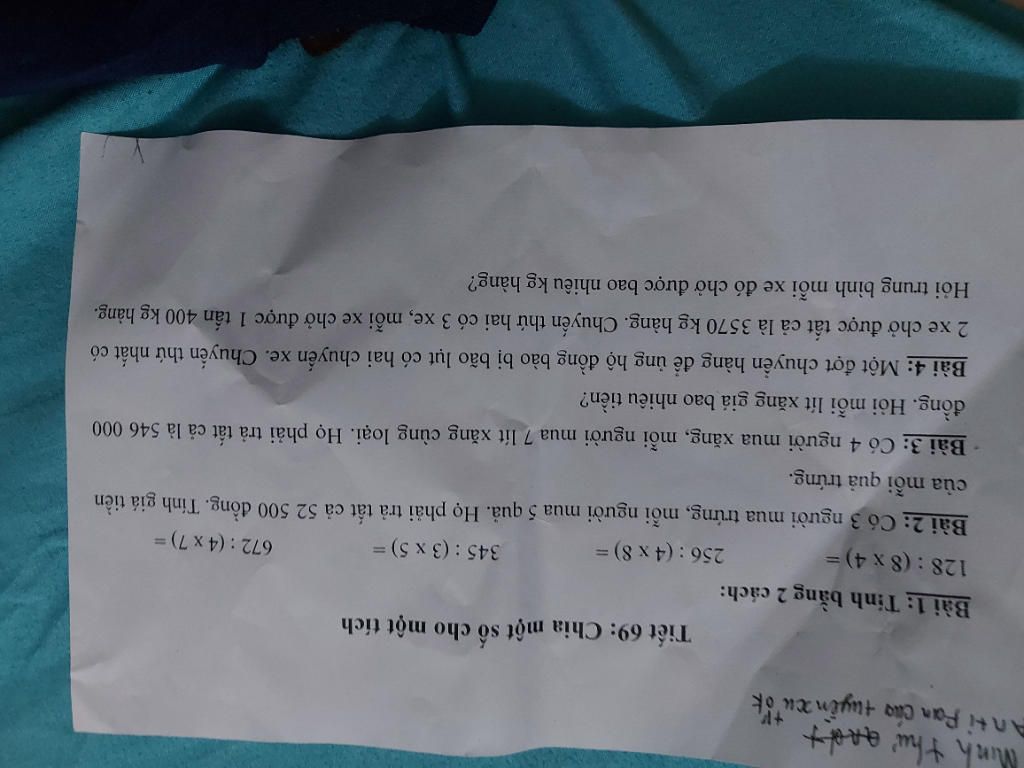 Minh thư
Anti Fan Cáo tuyển xu
Tiết 69: Chia một số cho một tích
Bài 1: Tính bằng 2 cách:
128 : (8 x 4) = 256 : (4 x 8) = 345 : (3 x 5) = 672 : (4 x 7) =
Bài 2: Có 3 người mua trứng, mỗi người mua 5 quả. Họ phải trả tất cả 52 500 đồng. Tính giá tiền
của mỗi quả trứng.
Bài 3: Có 4 người mua xăng, mỗi người mua 7 lít xăng cùng loại. Họ phải trả tất cả là 546 000
đồng. Hỏi mỗi lít xăng giá bao nhiêu tiền?
Bài 4: Một đợt chuyển hàng để ủng hộ đồng bào bị bão lụt có hai chuyến xe. Chuyến thứ nhất có
2 xe chở được tất cả là 3570 kg hàng. Chuyến thứ hai có 3 xe, mỗi xe chở được 1 tấn 400 kg hàng.
Hỏi trung bình mỗi xe đó chở được bao nhiêu kg hàng?